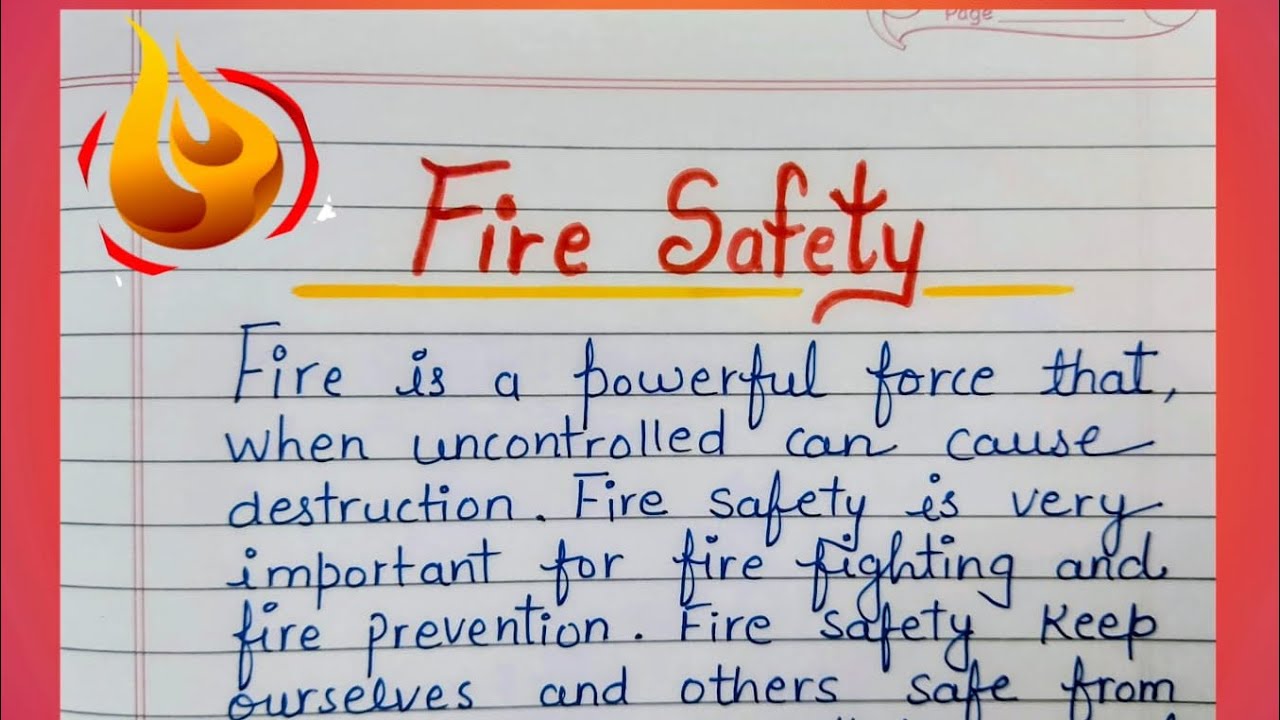 Page
Fire Safety
Fire is a powerful force that,
when uncontrolled can cause
destruction. Fire safety is very
important for fire fighting and
fire prevention. Fire safety keep
ourselves and others safe from